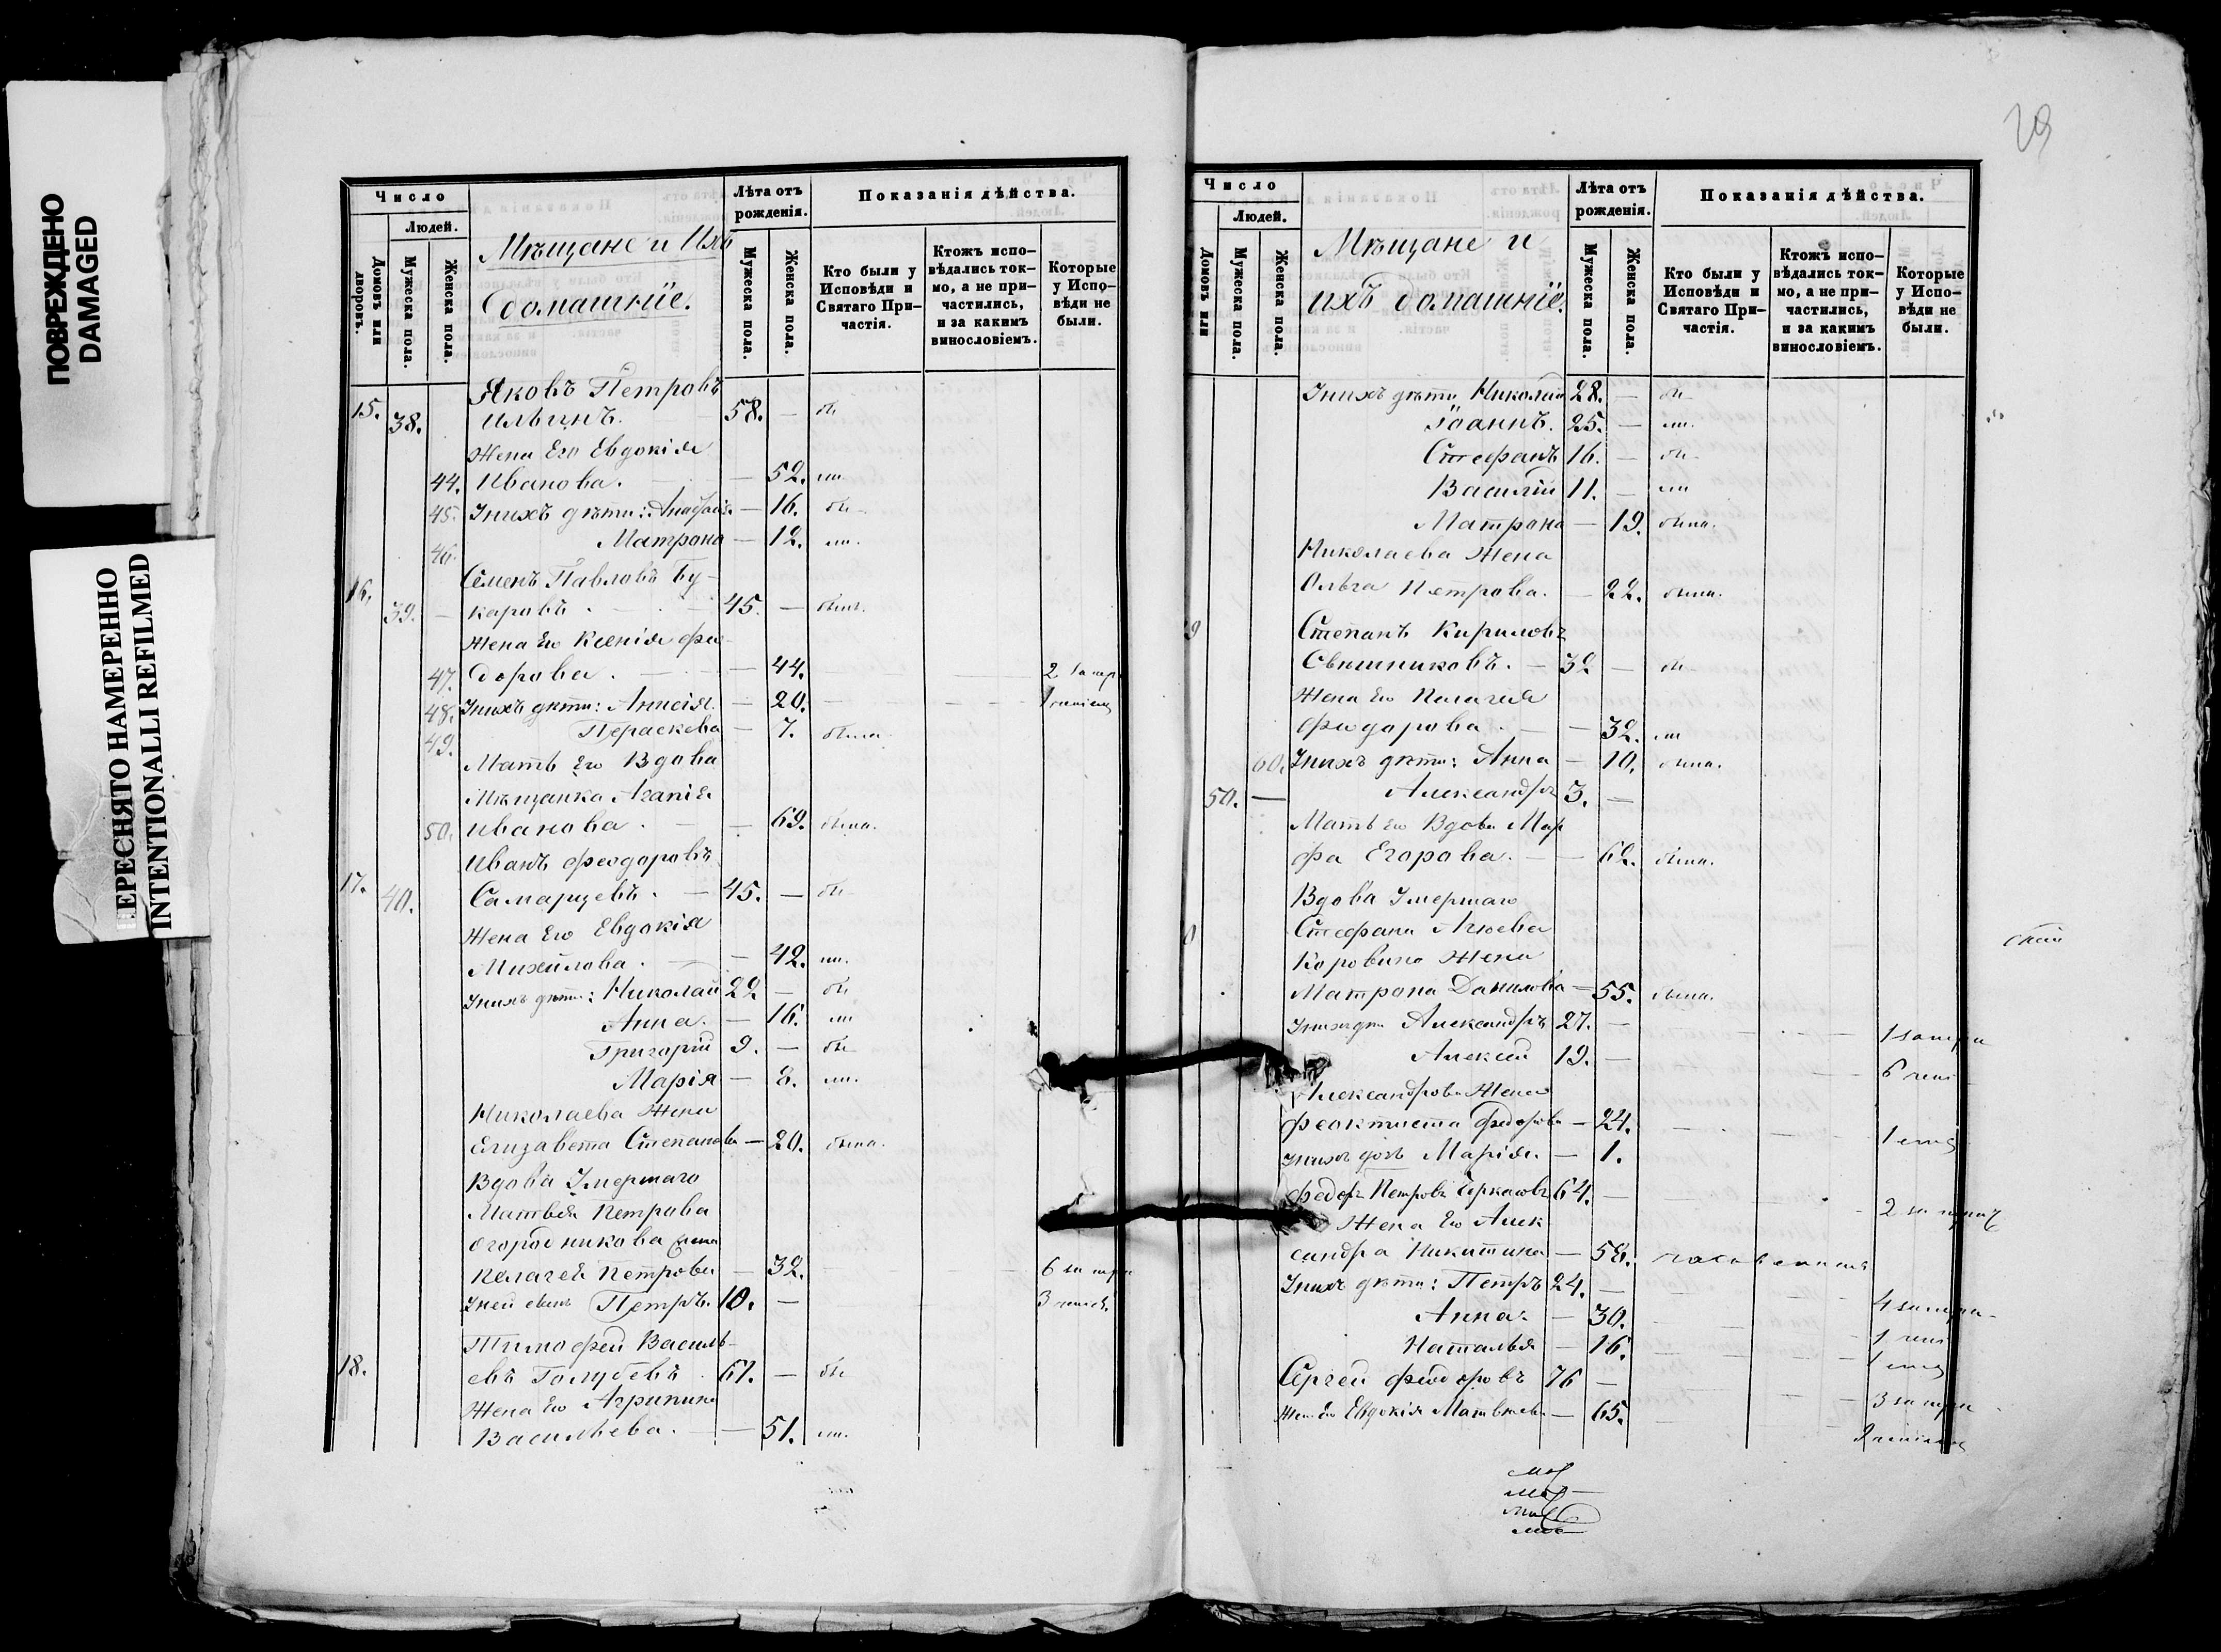 ПОВРЕЖДЕНО
DAMAGED
ЕРЕСНЯТО НАМЕРЕННО
INTENTIONALLI REFILMED
Число
Людей.
Домовъ или дворовъ.
Мужеска пола.
Женска пола.
Мѣщане и Ихъ
домашніе.
Лѣта отъ рожденія.
Мужеска пола.
Женска пола.
Показанія дѣйства.
Кто были у Исповѣди и Святаго При-частія.
Ктожъ испо-вѣдались ток-мо, а не при-частились, и за какимъ винословіемъ.
Которые у Испо-вѣди не были.
Яковъ Петровъ
15. 38. Ильинъ. 58. —
Жена Его Евдокія
44. Иванова. — 52.
45. У нихъ дѣти: — 16.
46. Матрона — 12.
Семенъ Павловъ Бу-
16. 39. — каровъ. 45. —
Жена Его Ксенія Фео-
47. дорова. — 44. —
48. У нихъ дѣти: Анисія. — 20. —
49. Параскева — 7. была
Мать Его Вдова
Мѣщанка Агапія
50. Иванова. — 69. была.
Иванъ Феодоровъ
17. 40. Самарцевъ. — 45. —
Жена Его Евдокія
Михайлова. — 42.
У нихъ дѣти: Николай 22. —
Анна. — 16.
Григорій 9. —
Марія — 8.
Николаева Жена
Елизавета Степанова — 20. была.
Вдова Умершаго
Матвѣя Петрова
Огородникова жена
Пелагея Петрова — 32. —
У ней сынъ Петръ. 10. —
Тимофей Василь-
18. евъ Голубевъ 61. —
Жена Его Агрипина
Васильева. — 51.
29
Число
Людей.
Домовъ или
Мужеска пола.
Женска пола.
Мѣщане и
ихъ домашніе.
Лѣта отъ рожденія.
Мужеска пола.
Женска пола.
Показанія дѣйства.
Кто были у Исповѣди и Святаго При-частія.
Ктожъ испо-вѣдались ток-мо, а не при-частились, и за какимъ винословіемъ.
Которые у Испо-вѣди не были.
У нихъ дѣти Николай 28. —
Іоаннъ. 25. —
Стефанъ 16. —
Василій 11. —
Матрона — 19. была.
Николаева Жена
Ольга Петрова. — 22. была.
9 Степанъ Кириловъ
Свѣшниковъ. — 32 —
Жена Его Пелагея
Феодорова. — 32.
60. У нихъ дѣти: Анна — 10. была.
50. — Александръ 3. —
Мать Его Вдова Мар
фа Егорова. — 62. была.
Вдова Умершаго
Стефана
Коровина Жена
Матрона Данилова — 55. была.
Александръ 27. —
Алексей 19. —
Александрова Жена
Феоктиста Федорова — 24. —
У нихъ дочь Марія. — 1.
Федоръ Петровъ 64. —
Жена Его Алек
сандра Никитина — 58.
У нихъ дѣти: Петръ 24. —
Анна. — 30.
Наталья — 16.
Сергей Феодоровъ 76 —
Жена Его Евдокія Матвѣева — 65.